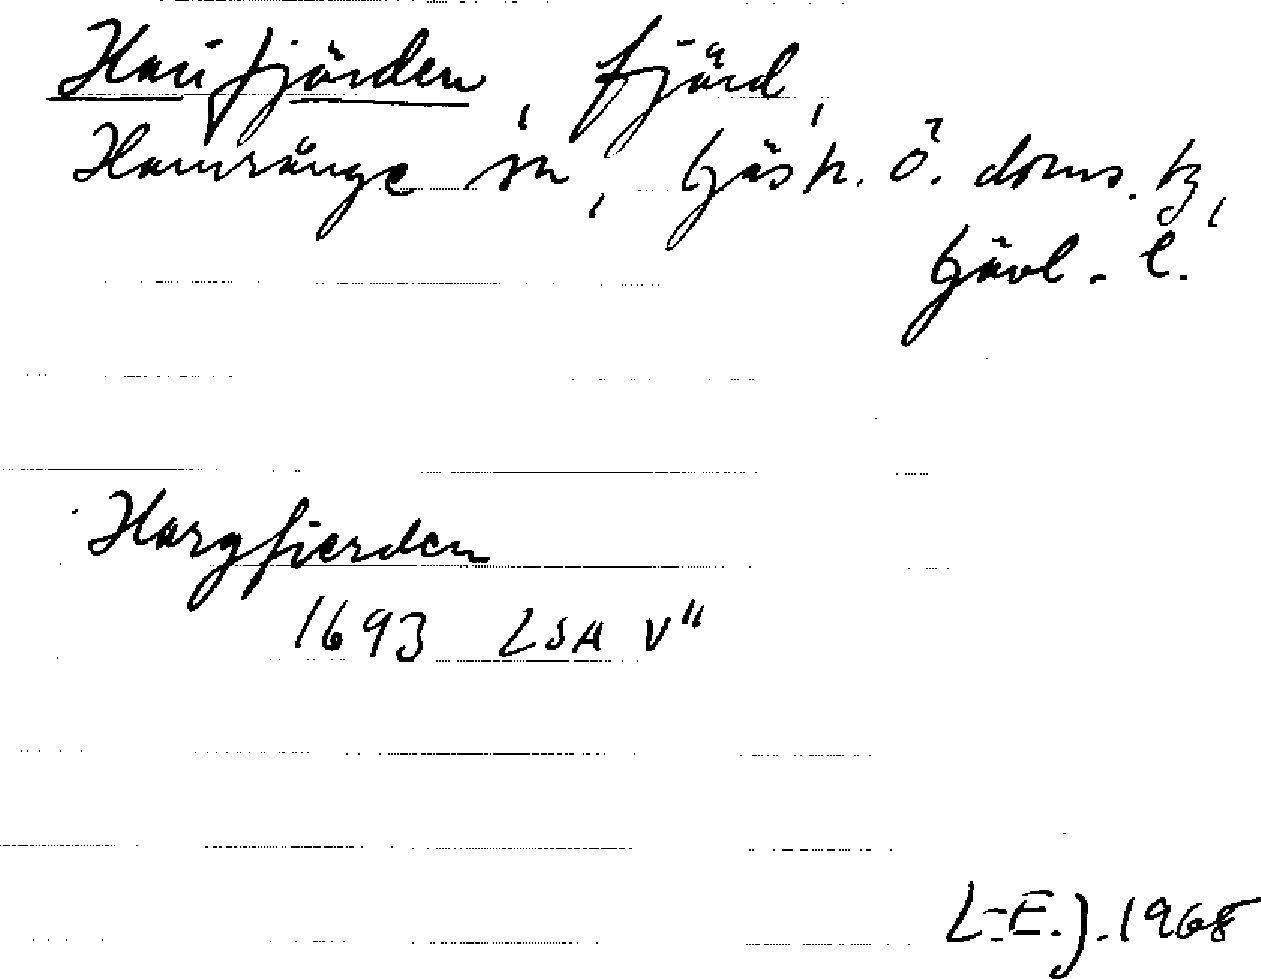 Harfjärden, fjärd,
Hamrånge sn, Gästr. Ö. doms. tg,
Gävl. l.
Hargfierden
1693 LSA V"
L-E.J. 1968